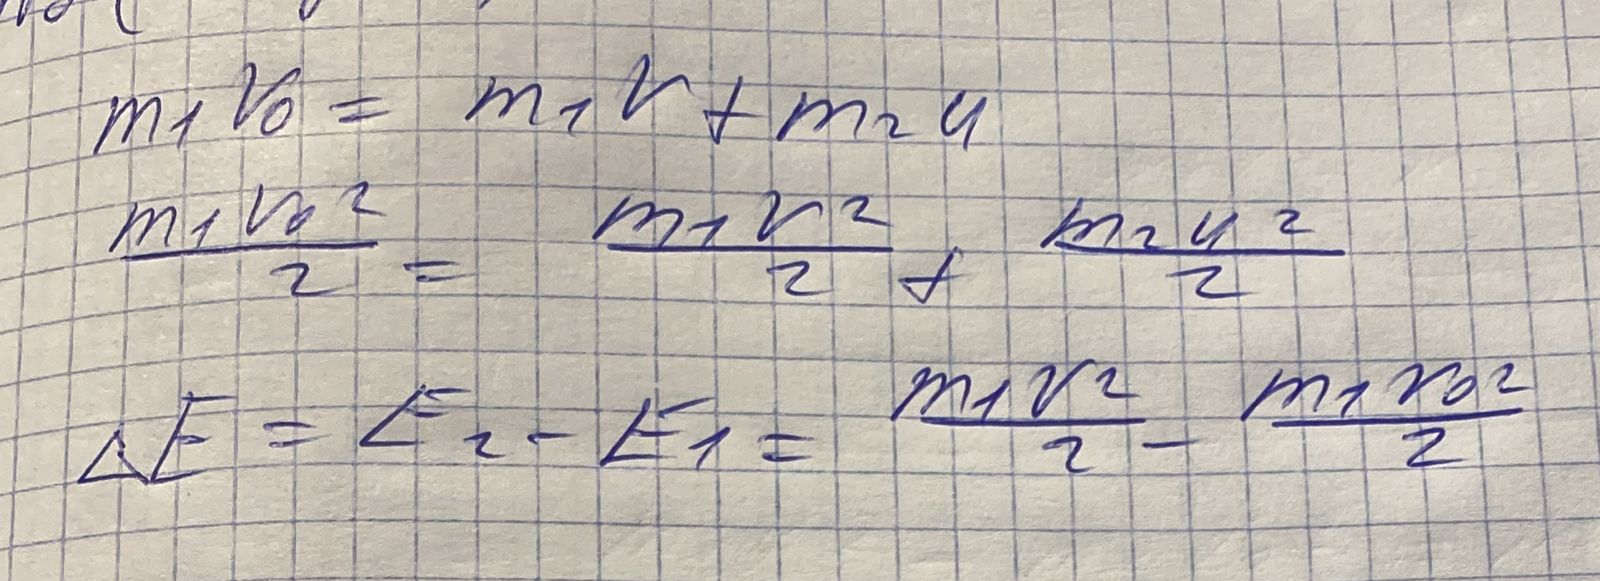 m₁V₀ = m₁V + m₂u
m₁V₀²/2 = m₁V²/2 + m₂u²/2
ΔE = E₂ - E₁ = m₁V²/2 - m₁V₀²/2